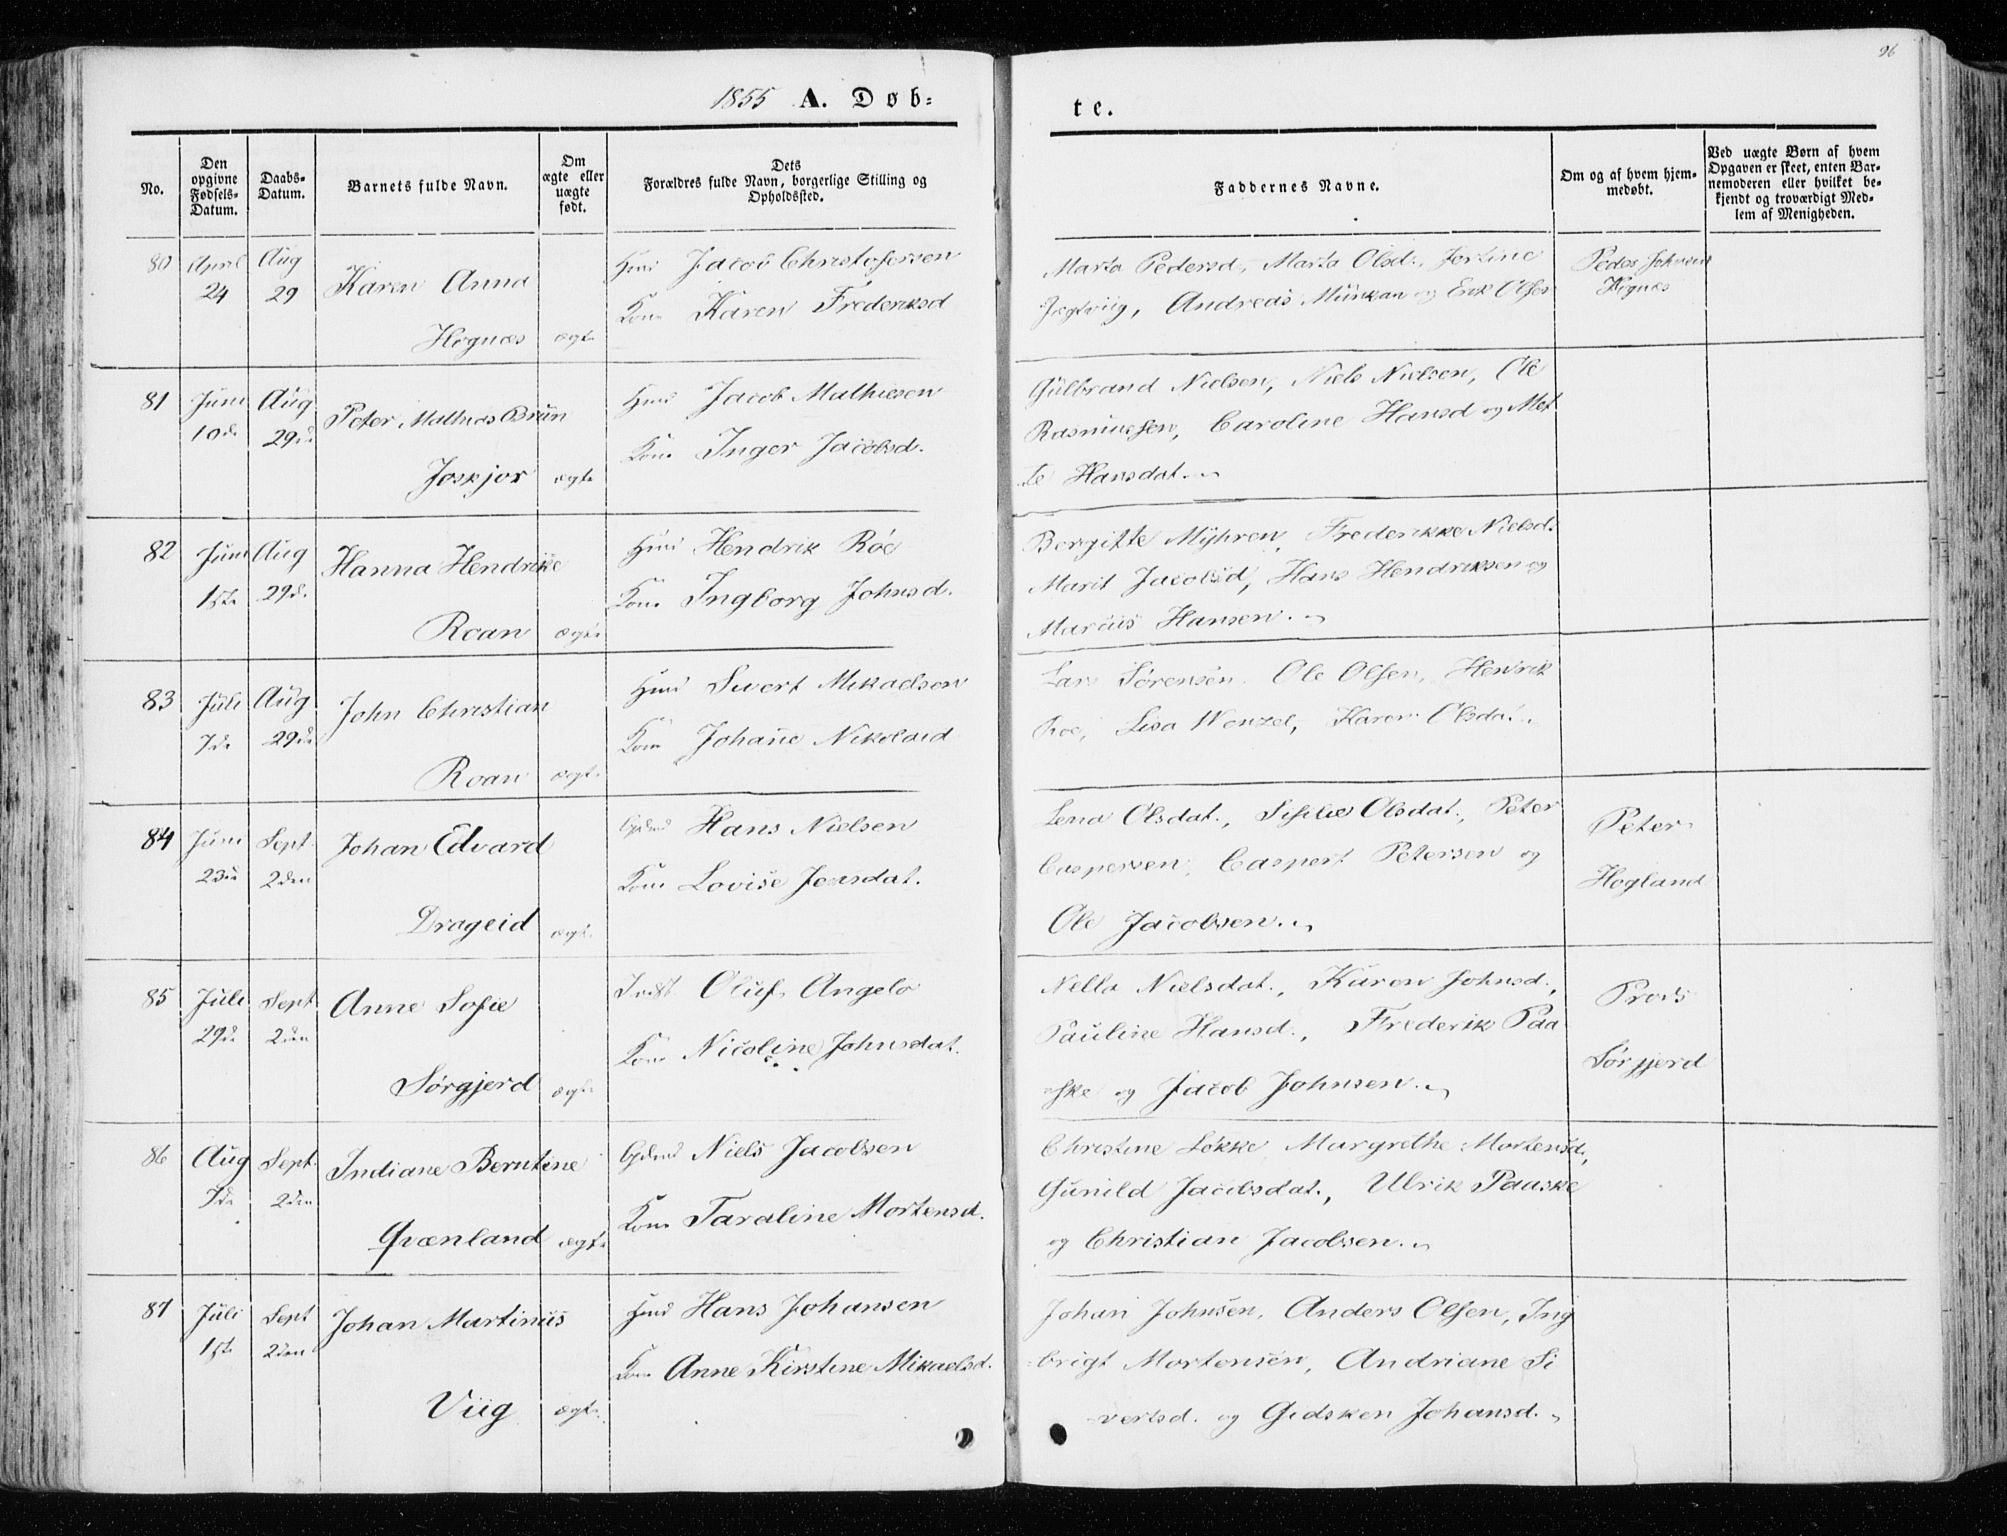 96
1855 A. Døb=
te.
No.
Den opgivne Fødsels-Datum.
Daabs-Datum.
Barnets fulde Navn.
Om ægte eller uægte født.
Dets Forældres fulde Navn, borgerlige Stilling og Opholdssted.
Faddernes Navne.
Om og af hvem hjemmedøbt.
Ved uægte Børn af hvem Opgaven er skeet, enten Barnemoderen eller hvilket bekjendt og troværdigt Medlem af Menigheden.
80 April Aug Karen Anna Hmd Jacob Christofersen
24 29 Kone Karen Frederiksd
Hognæs ægte
Marta Pedersd, Marta Olsd., Jertine Peder Johnsen
Jægtviig, Andreas Munkan og Erik Olsen Hognæs
81 Juni Aug Peter Mathias Brun Hmd Jacob Mathiesen
10de 29de Kone Inger Jacobsd.
Joskjor ægte
Gulbrand Nielsen, Niels Nielsen, Ole
Rasmussen, Caroline Hansd og Met
te Hansdat.
82 Juni Aug Hanna Hendrikke Hmd Hendrik Roe
1ste 29d. Kone Ingborg Johnsd.
Roan ægte
Bergitte Myhren, Frederikke Nielsd.
Marit Jacobsd, Hans Hendriksen og
Marius Hansen.
83 Juli Aug John Christian Hmd Sivert Mikaelsen
7de 29de Kone Johane Nikolaid
Roan ægte
Lars Sørensen. Ole Olsen, Henrik
Roe, Lisa Wenzel, Karen Olsdat.
84 Juni Sept. Johan Edvard Gdmd Hans Nielsen
23de 2den Kone Lovise Jensdat.
Drageid ægte
Lena Olsdat., Sisilie Olsdat., Peter Peter
Caspersen, Caspert Petersen og Hogland
Ole Jacobsen.
85 Juli Sept Anne Sofie Indst. Oluf Angelo
29de 2den Kone Nicoline Johnsdat.
Sørgjerd ægte
Nella Nielsdat., Karen Johnsd., Prods
Pauline Hansd., Frederik Paa Sørgjerd
ske og Jacob Johnsen.
86 Aug Sept. Indiane Berntine Gdmd Niels Jacobsen
7de 2den Kone Taraline Mortensd.
Qvænland ægte
Christine Løkke, Margrethe Mortensd.,
Gunild Jacobsdat., Ulrik Paaske
og Christian Jacobsen.
87 Juli Sept Johan Martinus Hmd Hans Johansen
1ste 2den Kone Anne Kirstine Mikaelsd.
Viig ægte
Johan Johnsen, Anders Olsen, Ing
brigt Mortensen, Andriane Si
vertsd. og Gidsken Johansd.